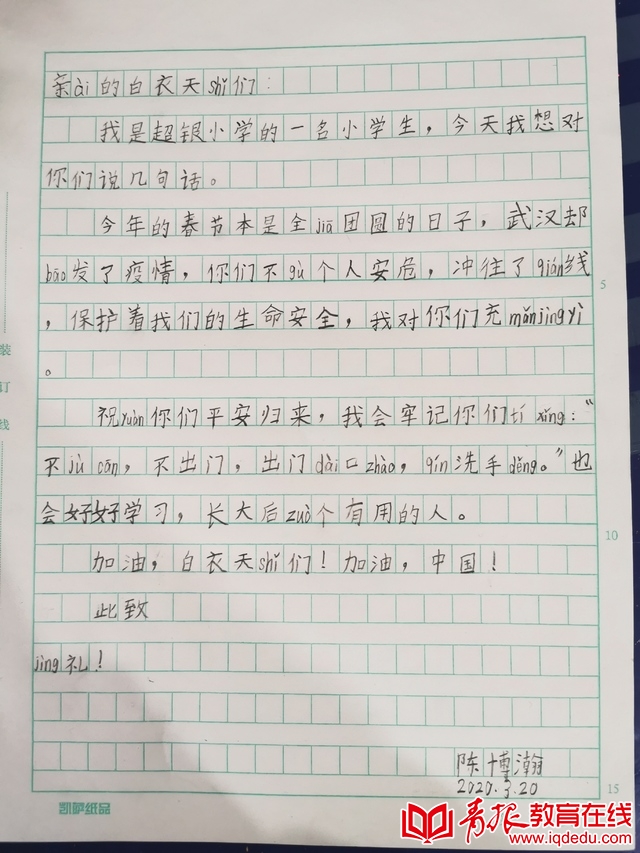 亲ài的白衣天shǐ们：
我是超银小学的一名小学生，今天我想对
你们说几句话。
今年的春节本是全jiā团圆的日子，武汉却
bào发了疫情，你们不gù个人安危，冲往了qián线
，保护着我们的生命安全，我对你们充mǎnjìngyì
。
祝yuàn你们平安归来，我会牢记你们tí xǐng：“
不jù cān，不出门，出门dài口zhào，qín洗手děng。”也
会好好学习，长大后zuò个有用的人。
加油，白衣天shǐ们！加油，中国！
此致
jìng礼！
陈博瀚
2020.3.20
5
10
15
装
订
线
凯萨纸品
青报教育在线
www.iqdedu.com